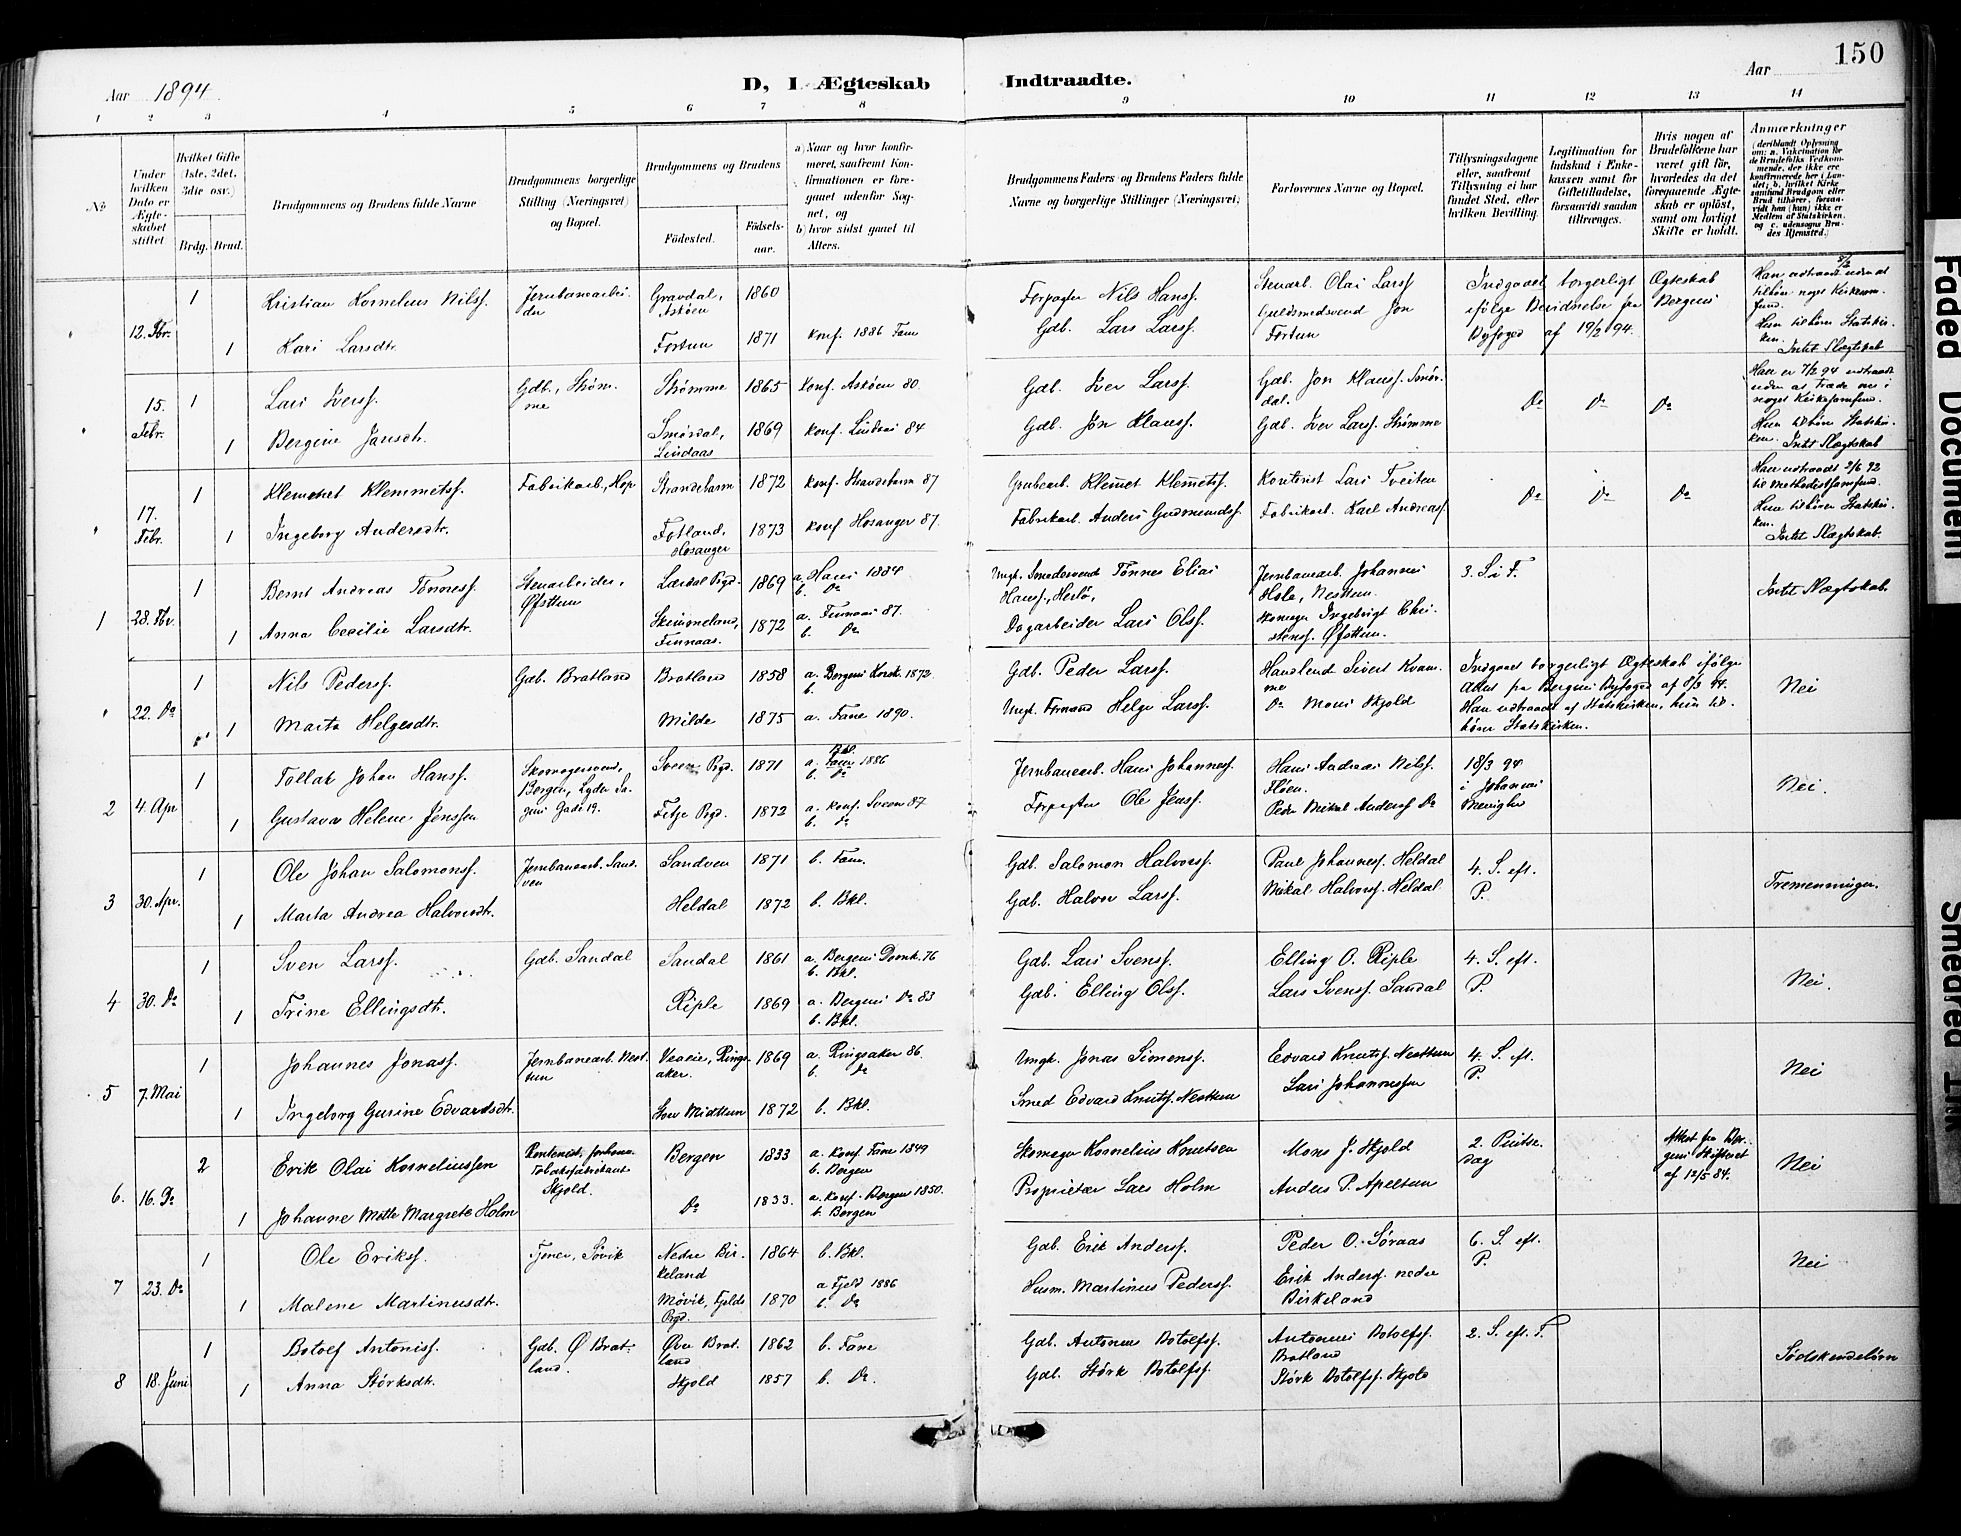 150
Aar 1894
D, I Ægteskab Indtraadte.
Aar
1 2 3 4 5 6 7 8 9 10 11 12 13 14
No
Under hvilken Dato er Ægteskabet stiftet
Hvilket Gifte (1ste, 2det, 3die osv.)
Brdg. Brud.
Brudgommens og Brudens fulde Navne
Brudgommens borgerlige Stilling (Næringsvei) og Bopæl.
Brudgommens og Brudens
Fødested.
Fødselsaar.
a) Naar og hvor konfirmeret, saafremt Konfirmationen er foregaaet udenfor Sognet, og
b) hvor sidst gaaet til Alters.
Brudgommens Faders og Brudens Faders fulde Navne og borgerlige Stillinger (Næringsvei)
Forlovernes Navne og Bopæl.
Tillysningsdagene eller, saafremt Tillysning ei har fundet Sted, efter hvilken Bevilling.
Legitimation for Indskud i Enkekassen samt for Giftetilladelse, forsaavidt saadan tiltrænges.
Hvis nogen af Brudefolkene har været gift før, hvorledes da det foregaaende Ægteskab er opløst, samt om lovligt Skifte er holdt.
Anmærkninger
(deriblandt Oplysning om: a. Vakcination for de Brudefolks Vedkommende, der ikke ere konfirmerede her i Landet; b. hvilket Kirkesamfund Brudgom eller Brud tilhører, forsaavidt han (hun) ikke er Medlem af Statskirken, og c. udensogns Brudes Hjemsted.)
12. Fbr. 1 Kristian Kornelius Nilsf. Jernbanearbeider Gravdal, Askøen 1860 Forpagter Nils Hansf. Stenarb. Olai Larsf Indgaaet borgerligt Ægteskab ifølge Bevidnelse fra Bergens Byfoged af 19/2 94.
1 Kari Larsdtr. Fortun 1871 konf. 1886 Fane Gdb. Lars Larsf. Guldsmedsvend Jon Fortun Hun tilhører Statskirken. Intet Slægtskab
15. Febr. 1 Lars Iversf. Gdb., Strømme Strømme 1865 Konf. Askøen 80 Gdb. Iver Larsf. Gdb. Jon Klausf. Smørdal. Do Do Do Han er 7/2 94 udtraadt uden at træde over i noget Kirkesamfund.
1 Bergine Jansdtr. Smørdal, Lindaas 1869 konf. Lindaas 84 Gdb. Jon Klausf. Gdb. Iver Larsf. Strømme Hun tilhører Statskirken. Intet Slægtskab
17. Febr. 1 Klemmet Klemmetsf. Fabrikarb., Hop Strandebarm 1872 konf. Strandebarm 87 Grubearb. Klemet Klemetsf. Kontorist Lars Tveiten Do Do Do Han udtraadt 2/6 92 til Methodistsamfund.
1 Ingeborg Andersdtr. Fotland, Hosanger 1873 konf Hosanger 87. Fabrikarb. Anders Gudmundsf. Fabrikarb. Karl Andreasf. Hun tilhører Statskirken. Intet Slægtskab.
1 28. Fbr. 1 Bernt Andreas Tønnesf. Stenarbeider, Øfsttun Lærdal Prgd. 1869 a. Haus 1884 b. Do Ungk. Smedesvend Tønnes Elias Hansf., Herlø, Jernbanearb. Johannes Hole, Nesttun. 3. S. i F. Intet Slægtskab.
1 Anna Cecilie Larsdtr. Skimmeland, Finnaas. 1872 a. Finnaas 87. b. Do Dagarbeider Lars Olsf. Skomager Ingebrigt Christensf. Øfsttun.
22. Do 1 Nils Pedersf. Gdb. Bratland Bratland 1858 a. Bergens Korsk. 1872. b. Gdb. Peder Larsf. Handlende Sivert Kvamme Indgaaet borgerligt Ægteskab ifølge Attest fra Bergens Byfoged af 8/3 94. Han udtraadt af Statskirken, hun tilhører Statskirken. Nei
1 Marta Helgesdtr. Milde 1875 a. Fane 1890. Ungk. Formand Helge Larsf. Do Mons Skjold
2 4. Apr 1 Tollak Johan Hansf. Skomagersvend, Bergen, Lyder Sagens Gade 19. Sveen Prgd. 1871 a. Fane 1886 b. Do Jernbanearb. Hans Johannesf. Hans Andreas Nilsf. Fløen. 18/3 94 i Johannes Menighed Nei.
1 Gustava Helene Jenssen Fitje Prgd. 1872 a. konf. Sveen 87 b. Do Forpagter Ole Jensf. Peder Mikal Andersf Do
3 30. Apr. 1 Ole Johan Salomonsf. Jernbanearb. Sandven Sandven 1871 b. Fane. Gdb. Salomon Halvorsf. Paul Johannesf. Heldal 4. S. eft. P. Tremenninger.
1 Marta Andrea Halvorsdtr. Heldal 1872 b. Bkl. Gdb. Halvor Larsf. Mikal Halvorsf. Heldal
4 30. Do 1 Sven Larsf. Gdb. Sandal Sandal 1861 a. Bergens Domk. 76 b. Bkl. Gdb. Lars Svensf. Elling O. Riple 4. S. eft. P. Nei.
1 Trine Ellingsdtr. Riple 1869 a. Bergens Do 83 b. Bkl. Gdb. Elling Olsf. Lars Svensf. Sandal
5 7. Mai 1 Johannes Jonasf. Jernbanearb. Nesttun Veaeie, Ringsaker. 1869 a. Ringsaker 86. b. Do Ungk. Jonas Simensf. Edvard Knutsf. Nesttun 4. S. eft. P. Nei
1 Ingeborg Gurine Edvardsdtr. Midttun 1872 b. Bkl. Smed Edvard Knutsf. Nesttun Lars Johannessen
6. 16. Do 2 Erik Olai Korneliussen Rentenist, forhenv. Tobaksfabrikant Skjold. Bergen 1833 a. Konf. Fane 1849 b. Bergen Skomager Kornelius Knutsen Mons J. Skjold 2. Pintsedag Attest fra Bergens Skifteret af 12/5 84. Nei
1 Johanne Mette Margrete Holm Do 1833. a. konf. Bergen 1850. b. Bergen Proprietær Lars Holm Anders P. Apeltun
7 23. Do 1 Ole Eriksf. Tjener, Søvik Nedre Birkeland 1864 b. Bkl. Gdb. Erik Andersf. Peder O. Søraas 6. S. eft. P. Nei
1 Malene Martinusdtr. Møvik, Fjelds Prgd. 1870 a Fjeld 1886 b. Do Husm. Martinus Pedersf. Erik Andersf. nedre Birkeland
8 18. Juni 1 Botolf Antonisf. Gdb. Ø Bratland. Øvre Bratland 1862 b. Fane Gdb. Antonius Botolfsf. Antonius Botolfsf. Bratland 2. S. eft. T. Sødskendebørn
1 Anna Størksdtr. Skjold 1857 b. Do. Gdb. Størk Botolfsf. Størk Botolfsf. Skjold
Faded Document
Smeared Ink